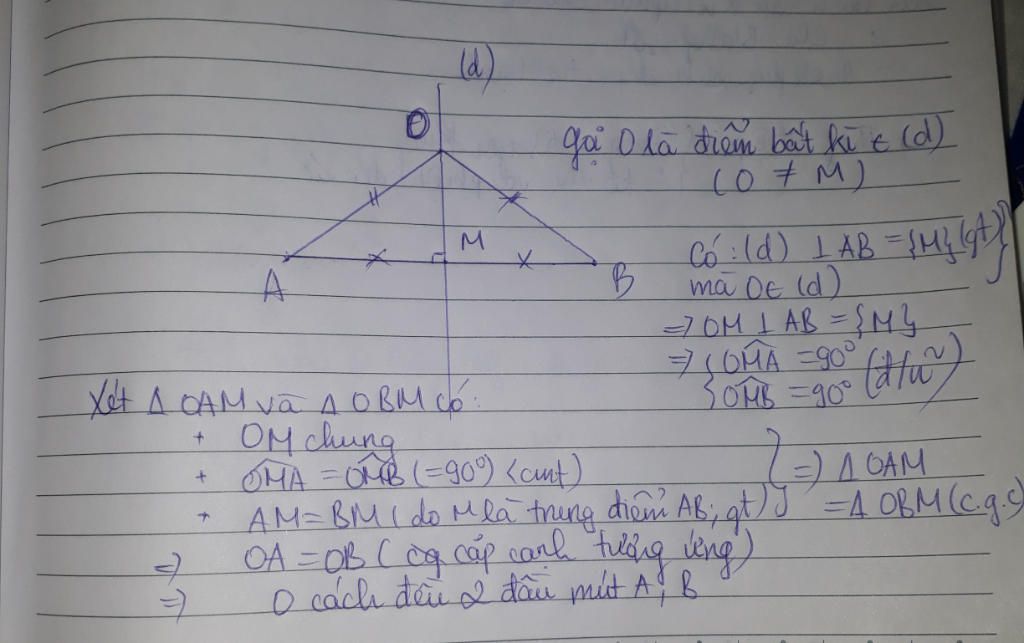 (d)
O
M
A
B
gọi O là điểm bất kì ∈ (d)
(O ≠ M)
Có: (d) ⊥ AB = {M} (gt)
mà O ∈ (d)
=> OM ⊥ AB = {M}
=> { OMA = 90°
{ OMB = 90° (đ/n)
Xét Δ OAM và Δ OBM có:
+ OM chung
+ OMA = OMB (= 90°) (cmt)
+ AM = BM (do M là trung điểm AB; gt)
} => Δ OAM
= Δ OBM (c.g.c)
=> OA = OB (cặp cạnh tương ứng)
=> O cách đều 2 đầu mút A; B